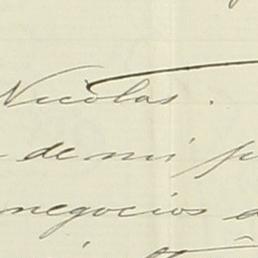 Nicolas.
de mi
negocios